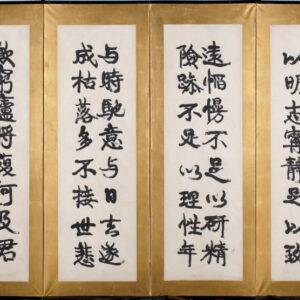 以明志寧靜足以致
遠慆慢不足以研精
險躁不足以理性年
与時馳意与日去遂
成枯落多不接世悲
歎窮廬將復何及君